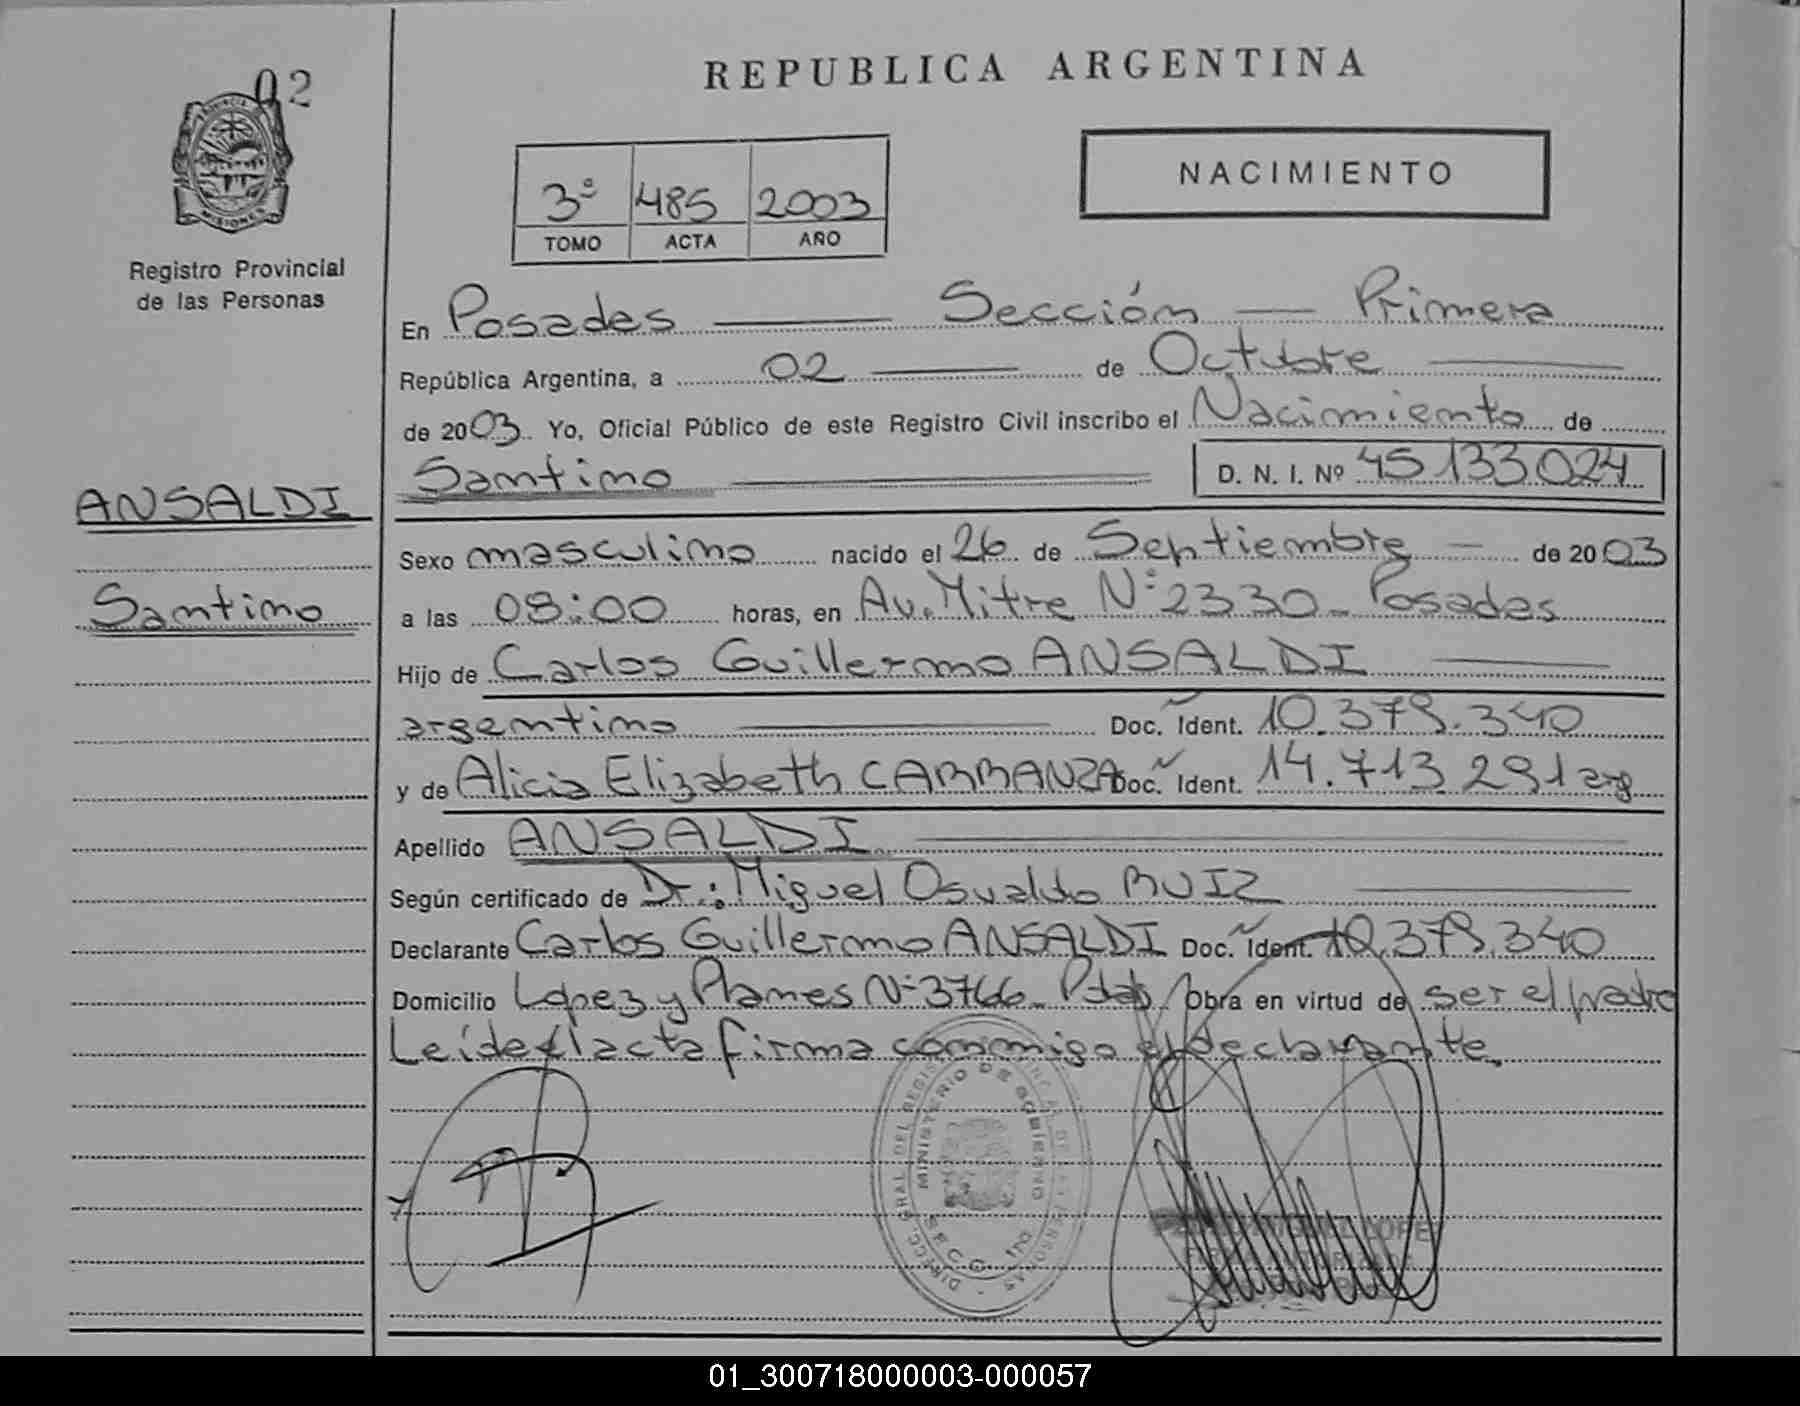 02
PROVINCIA DE
MISIONES
Registro Provincial
de las Personas
ANSALDI
Santino
REPUBLICA ARGENTINA
3º 485 2003
TOMO ACTA AÑO
NACIMIENTO
En Posadas Sección Primera
República Argentina, a 02 de Octubre
de 2003 Yo, Oficial Público de este Registro Civil inscribo el Nacimiento de
Santino D. N. I. Nº 45.133.024
Sexo masculino nacido el 26 de Septiembre de 2003
a las 08:00 horas, en Av. Mitre Nº 2330 - Posadas
Hijo de Carlos Guillermo ANSALDI
argentino Doc. Ident. 10.379.340
y de Alicia Elizabeth CARRANZA Doc. Ident. 14.713.291 arg
Apellido ANSALDI
Según certificado de Dr.: Miguel Osvaldo RUIZ
Declarante Carlos Guillermo ANSALDI Doc. Ident. 10.379.340
Domicilio Lopez y Planes Nº 3766 - Pdas Obra en virtud de ser el padre
Leída el acta firma conmigo el declarante.
MINISTERIO DE GOBIERNO
SECC. 1ra
LOPEZ
01_300718000003-000057